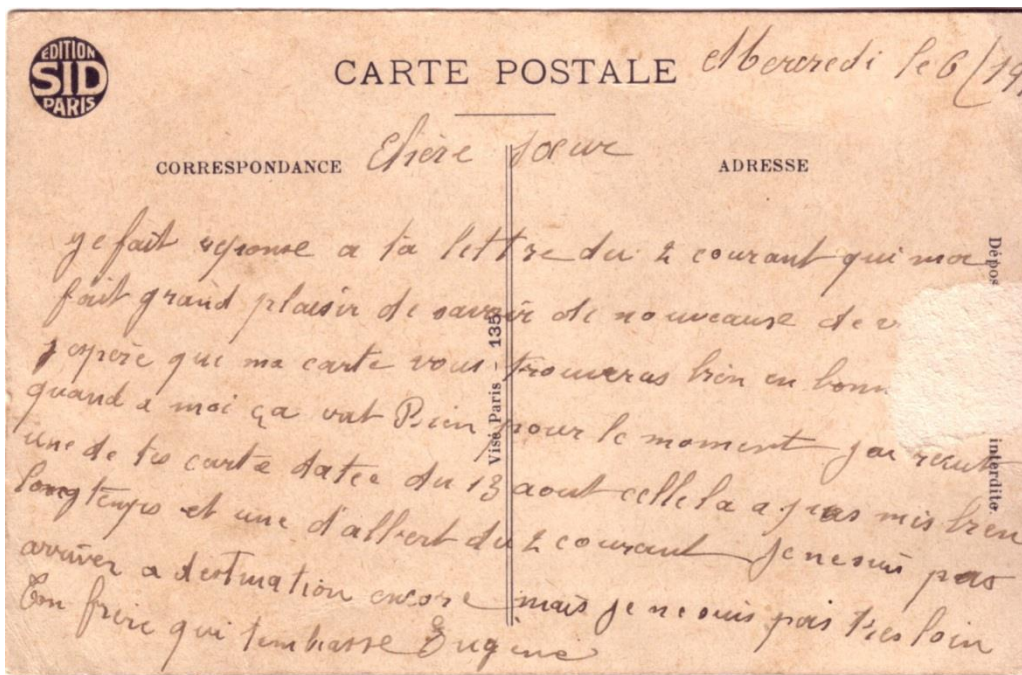 EDITION
SID
PARIS
CARTE POSTALE
Mercredi le 6/19
CORRESPONDANCE
Chère sœur
ADRESSE
ye fait reponse a ta lettre du 2 courant qui ma
fait grand plaisir de savoir de nouveause de v
j espère que ma carte vous trouveras bien en bonn
quand a moi ça vat Bien pour le moment jai recut
une de tes carte datée du 13 aout cellela a pas mis bien
longtemps et une d'albert du 2 courant Je ne suis pas
arriver a destination encore mais je ne suis pas tres loin
Ton frère qui tembrasse Eugène
Visé Paris - 135
Dépos
interdite.